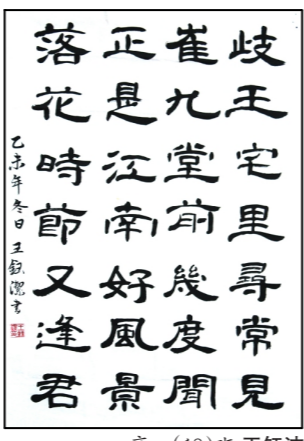 岐王宅里尋常見
崔九堂前幾度聞
正是江南好風景
落花時節又逢君
乙未年冬日王鈺潔書
(48)班 王钰洁